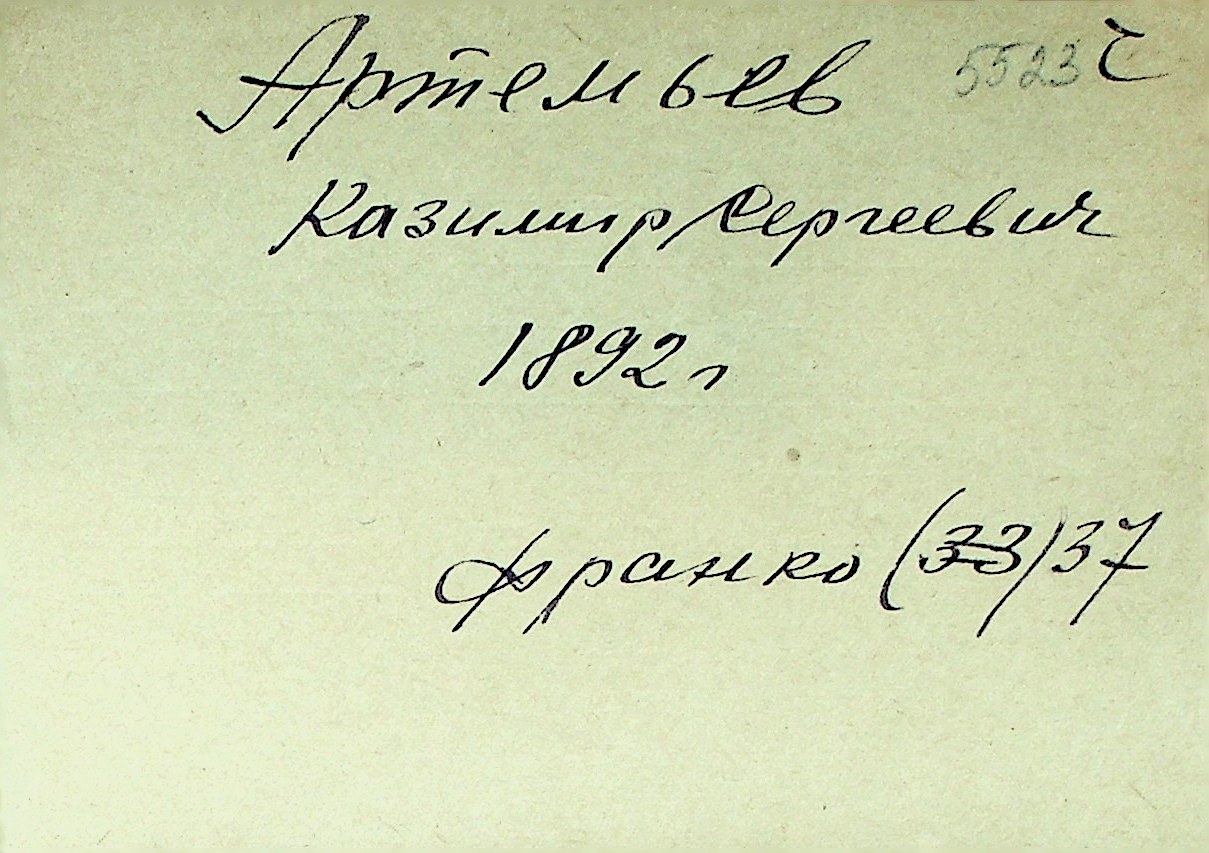 Артемьев 5523 ч
Казимир Сергеевич
1892 г
Франко (33) 37